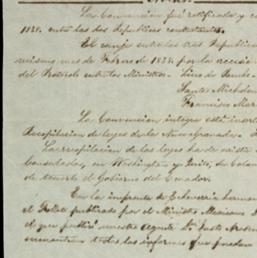 La Convencion fué ratificada y c
1838. entre las dos Republicas contratantes.
El canje entre las tres Republica
mismo mes de Febrero de 1838. por la accesio
del Protocolo entre los Ministros. Lino de Pombo.
Santos Michelena
Francisco Mar
La Convencion integra está inserta
Recopilacion de leyes de la Nueva granada.
La recopilacion de las leyes ha de existir
Consulados, en Washington y Quito, de Colom
el Gobierno del Ecuador.
En la imprenta de Echeverria herman
el folleto publicado por el Ministro Mexicano
el que publicó nuestro agente D. Justo Arosem
todos los informes que puedan